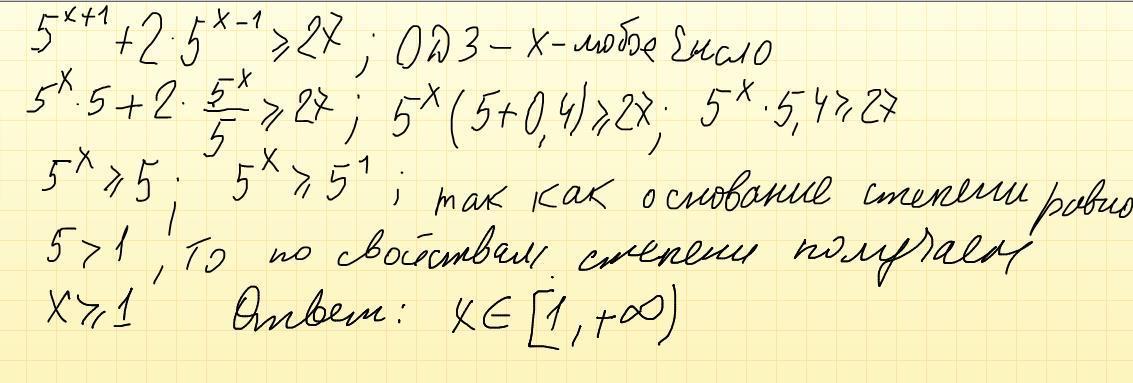 5^{x+1} + 2 · 5^{x-1} ≥ 27 ; ОДЗ – x – любое число
5^x · 5 + 2 · \frac{5^x}{5} ≥ 27 ; 5^x (5 + 0,4) ≥ 27 ; 5^x · 5,4 ≥ 27
5^x ≥ 5 ; 5^x ≥ 5^1 ; так как основание степени равно
5 > 1 , то по свойствам степени получаем
x ≥ 1 Ответ: x ∈ [1, +∞)